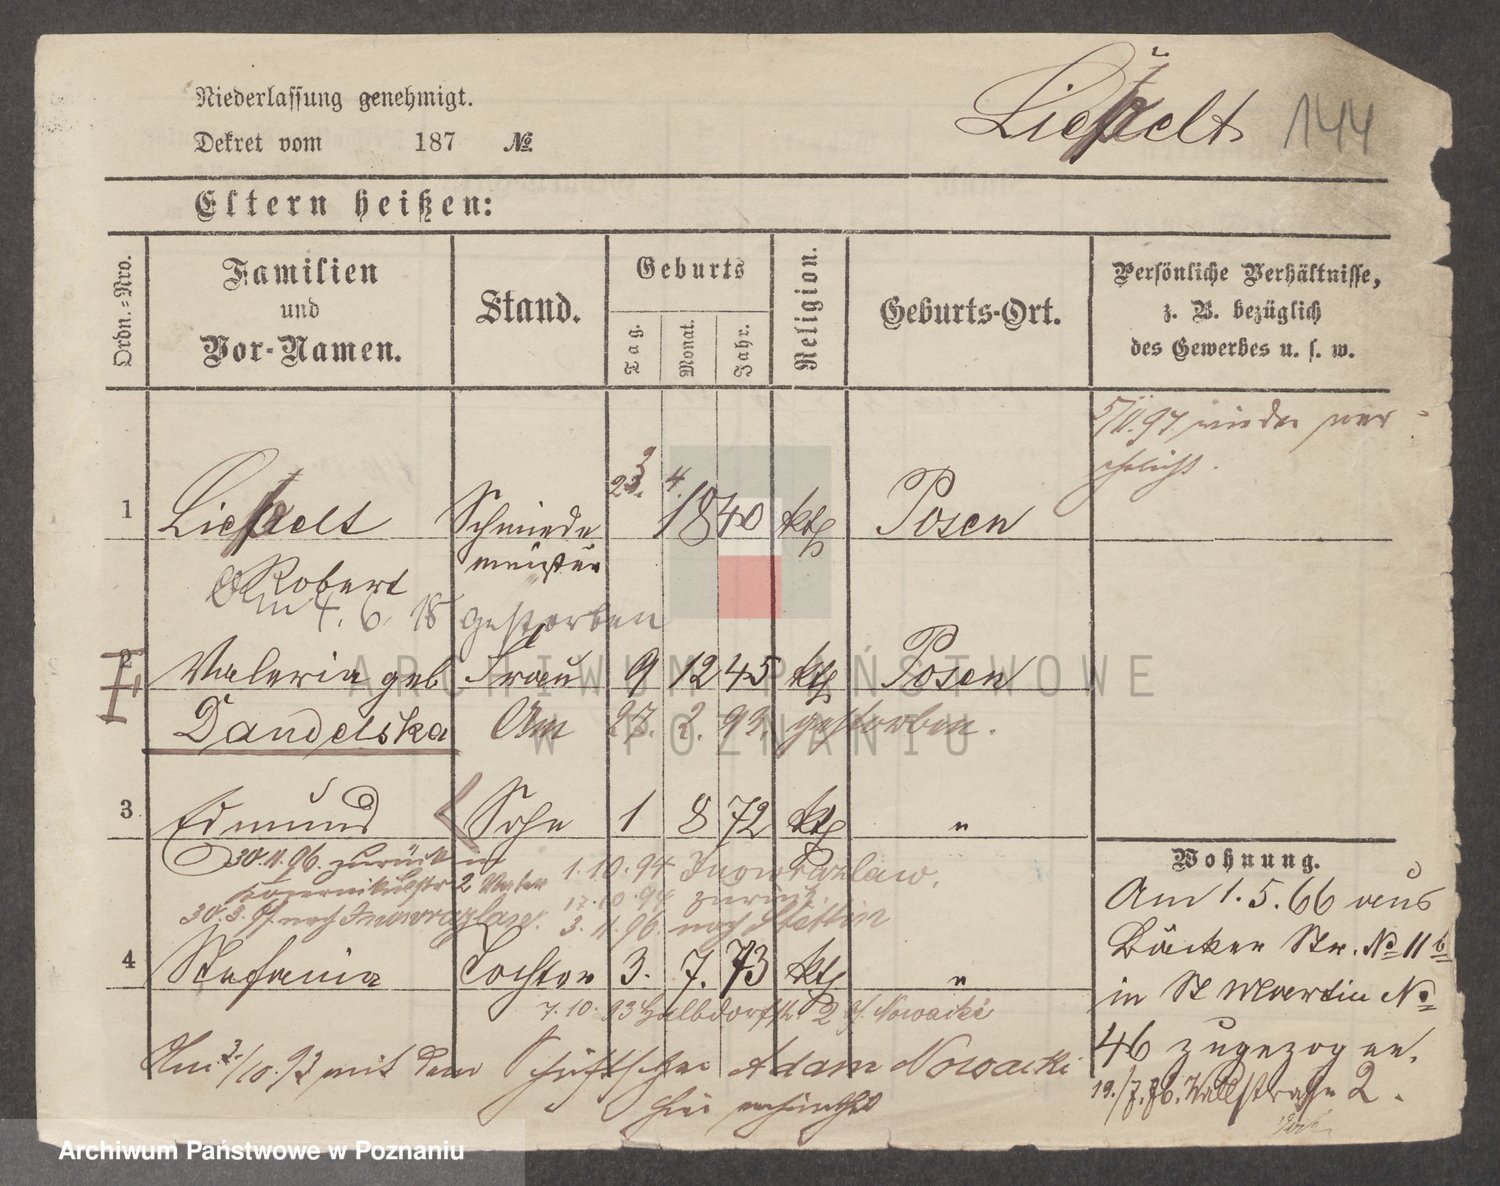 Niederlassung genehmigt.
Dekret vom 187 №.
Liepelt 144
Eltern heißen:
Ordn.-Nro.
Familien
und
Vor-Namen.
Stand.
Geburts
Tag.
Monat.
Jahr.
Religion.
Geburts-Ort.
Persönliche Verhältnisse,
z. B. bezüglich
des Gewerbes u. s. w.
5/11. 97. wieder ver-
ehelicht.
1 Liepelt Schmiede 23. 4. 1840 kth Posen
Robert meister
Am 4. 6. 18 gestorben
2 Valeria geb Frau 9 12 45 kth Posen
Dandelska Am 27. 2. 93. gestorben.
3 Edmund Sohn 1 8 72 kth "
30.11.96. zurück 1.10.94 Inowrazlaw.
2 Vater 17.10.94 zurück.
30.3.97. nach Inowrazlaw. 3.11.96. nach Stettin
4 Stefania Tochter 3. 7. 73 kth "
7.10.93 Halbdorfstr. 2 Nowacki
Am /10.93 mit dem Adam Nowacki
hier
Wohnung.
Am 1.5.66 aus
Bäcker Str. № 11 b
in St Martin №
46 zugezogen.
19./7.76. Wallstraße 2.
ARCHIWUM PAŃSTWOWE
W POZNANIU
Archiwum Państwowe w Poznaniu